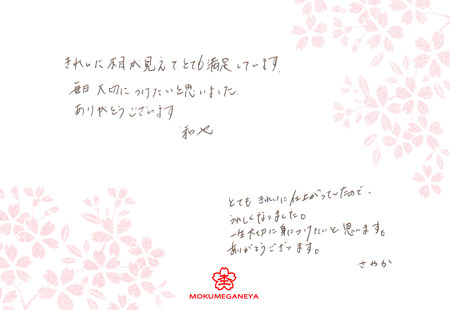 きれいに木目が見えてとても満足しています。
毎日大切につけたいと思いました。
ありがとうございます
和也
とてもきれいに仕上がっていたので、
うれしくなりました。
一生大切に身につけたいと思います。
ありがとうございます。
さやか
MOKUMEGANEYA